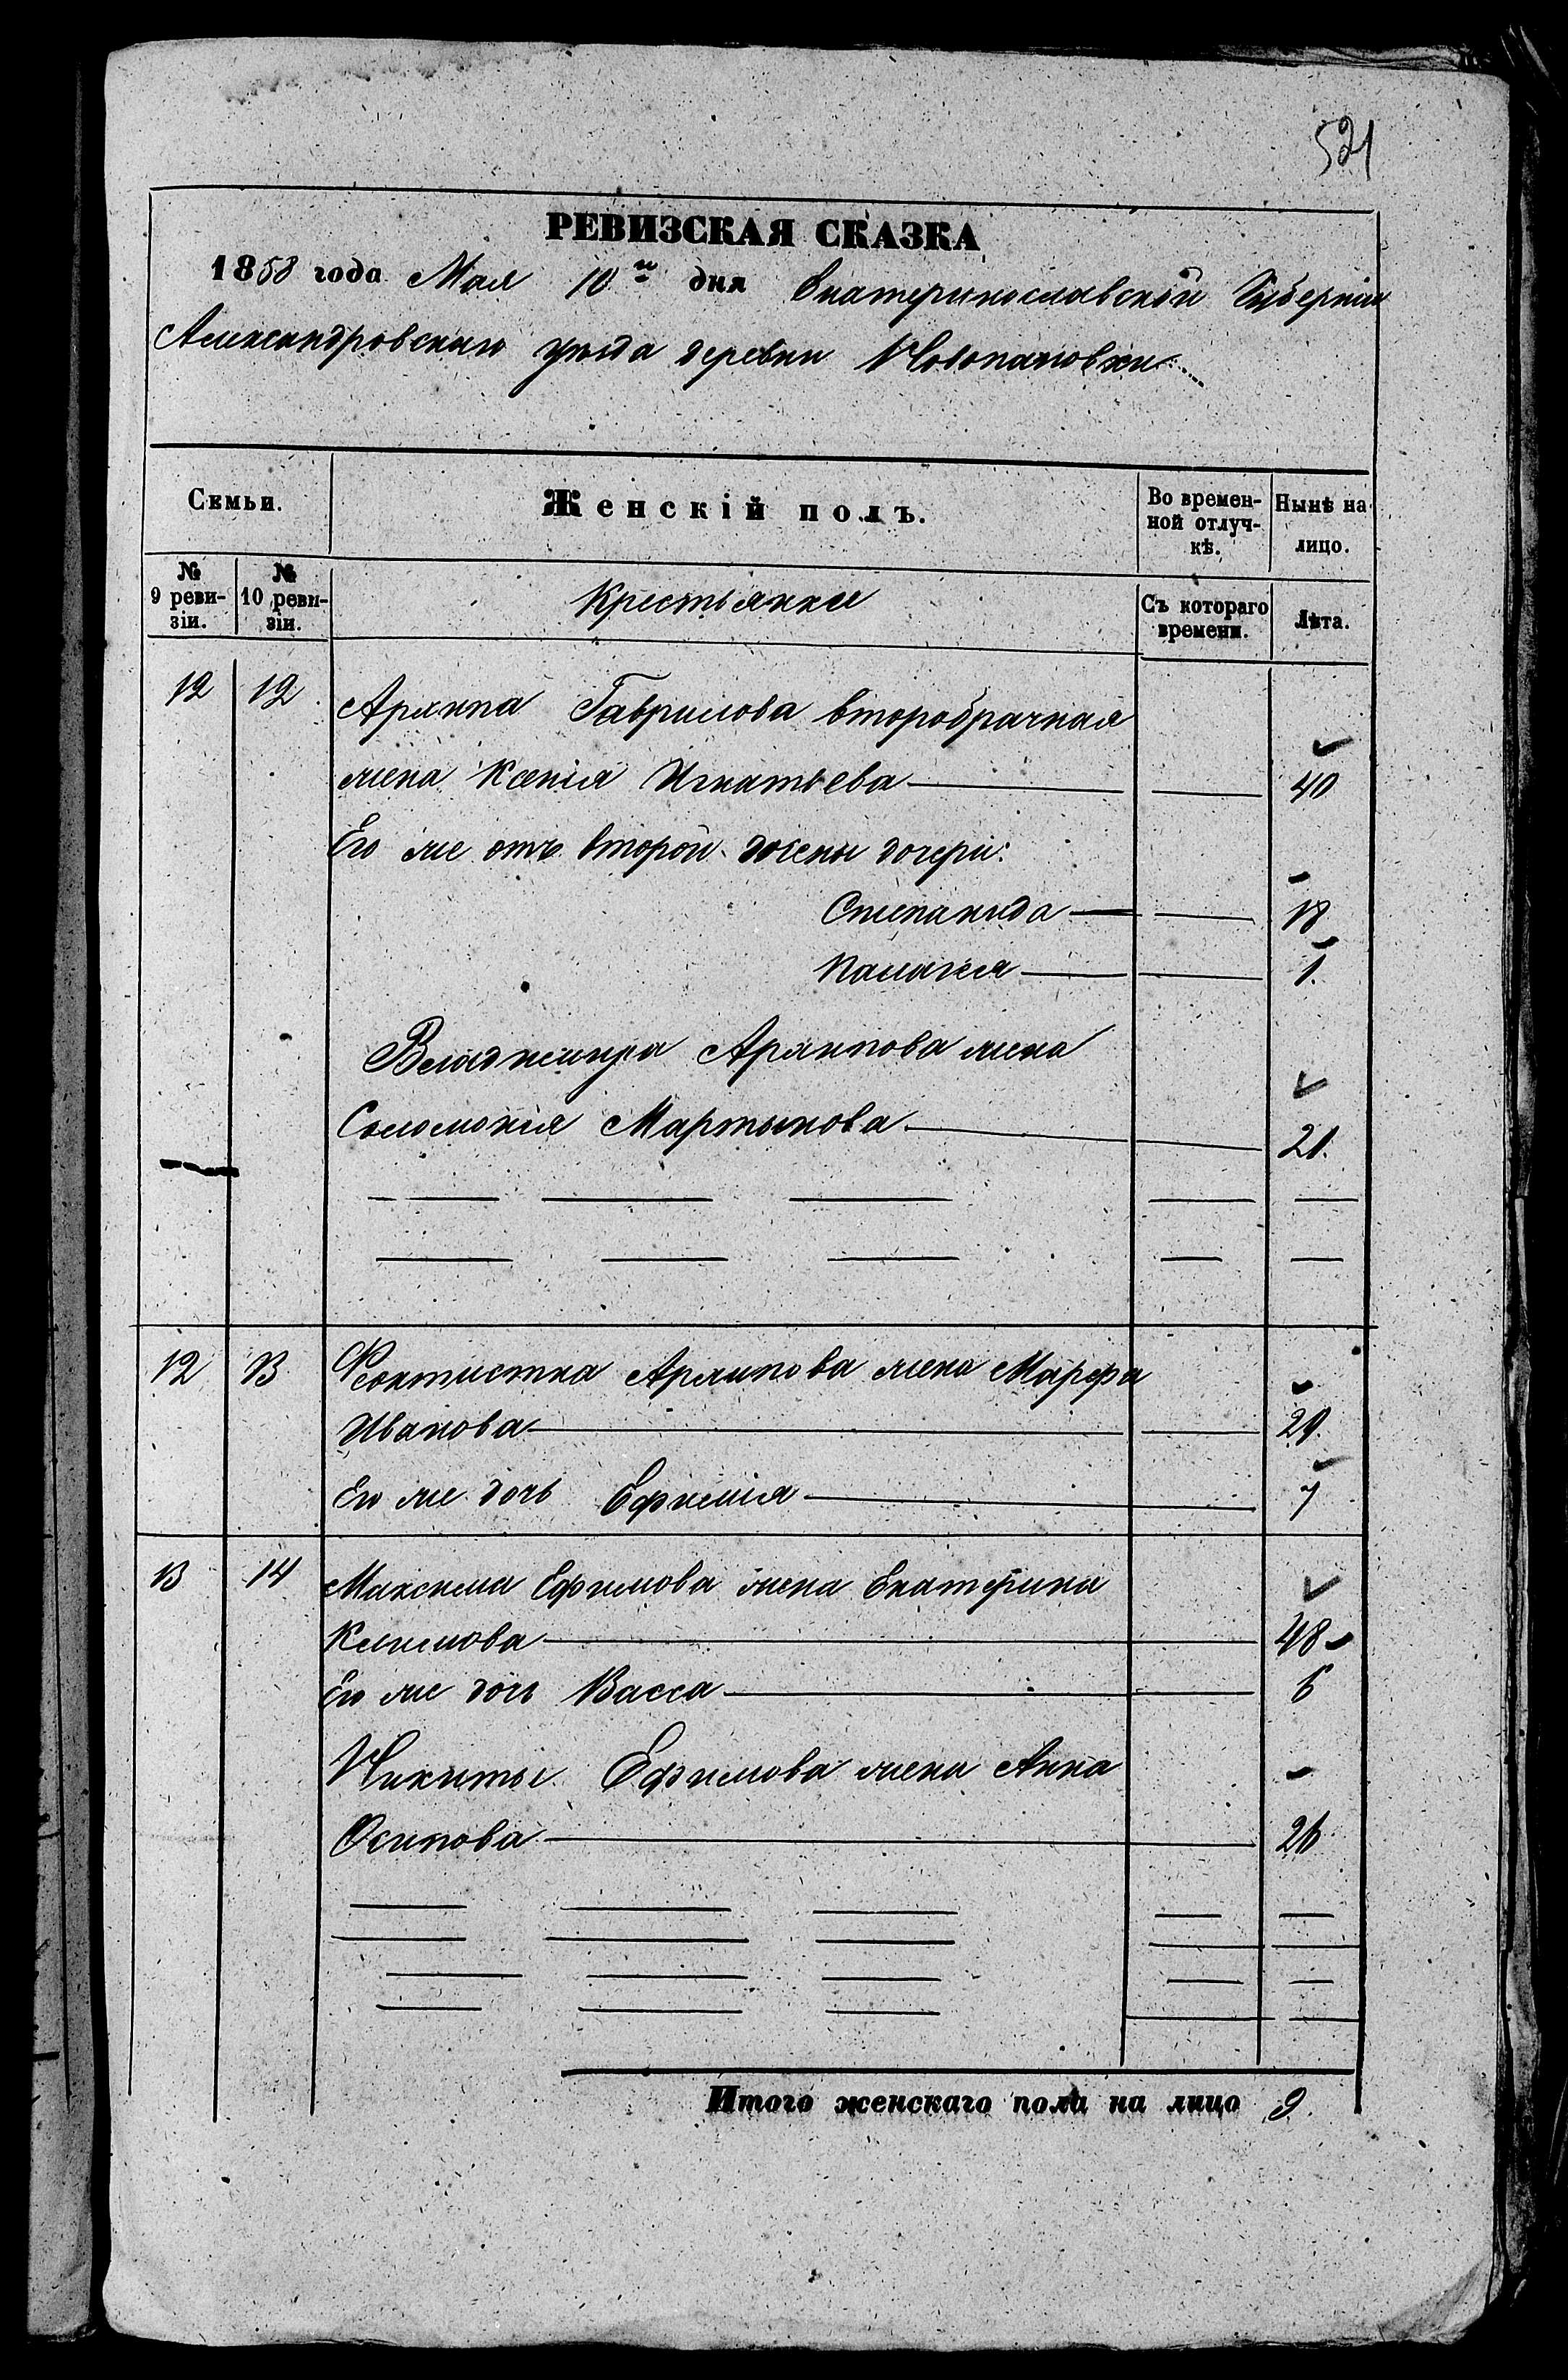 521
РЕВИЗСКАЯ СКАЗКА
1858 года Мая 10го дня Екатеринославской Губерніи
Александровскаго уѣзда деревни Новопавловки
Семьи.
Женскій полъ.
Во времен-
ной отлуч-
кѣ.
Нынѣ на
лицо.
№
9 реви-
зіи.
№
10 реви-
зіи.
Крестьянки
Съ котораго
времени.
Лѣта.
12 12 Архипа Гаврилова второбрачная
жена Ксенія Игнатьева 40
Его же отъ второй жены дочери:
Степанида 18
Палагея 1.
Владимира Архипова жена
Соломонія Мартынова 21.
12 13 Феоктиста Архипова жена Марфа
Иванова 29.
Его же дочь Ефимія 7
13 14 Максима Ефимова жена Екатерина
Климова 48
Его же дочь Васса 6
Никиты Ефимова жена Анна
Осипова 26
Итого женскаго пола на лицо 9.